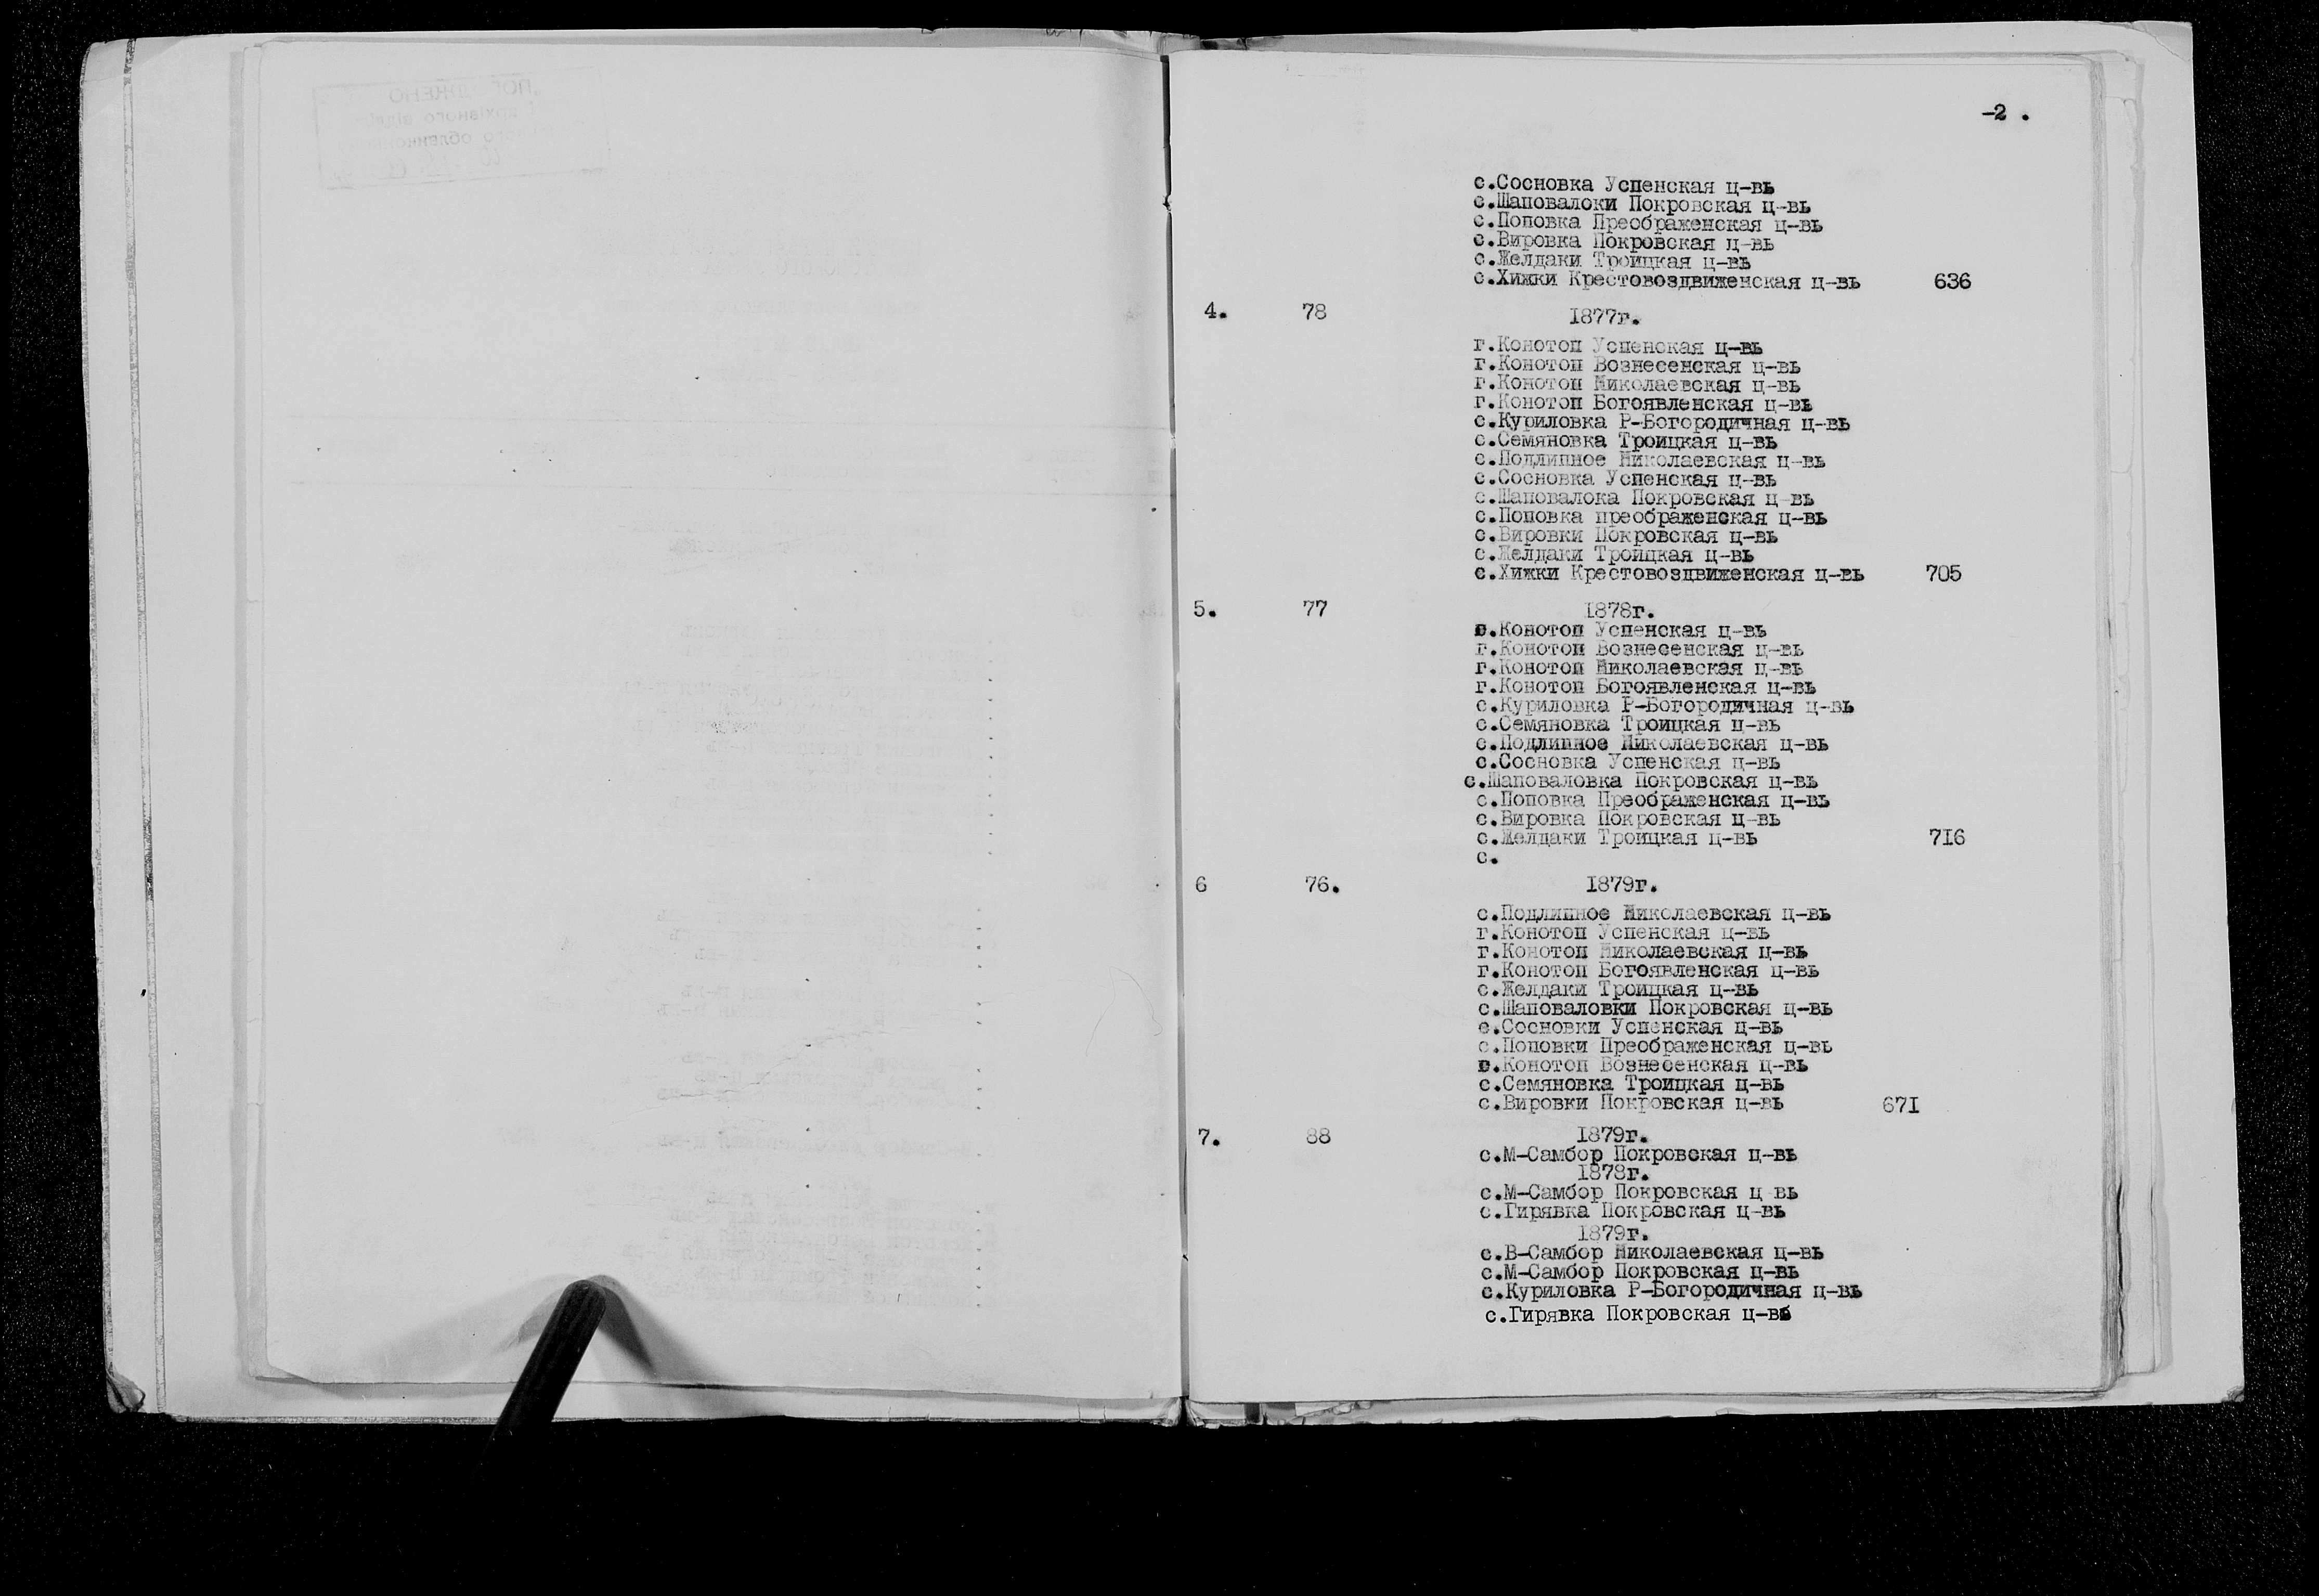 -2 .
с.Сосновка Успенская ц-вь
с.Шаповалоки Покровская ц-вь
с.Поповка Преображенская ц-вь
с.Вировка Покровская ц-вь
с.Желдаки Троицкая ц-вь
с.Хижки Крестовоздвиженская ц-вь 636
4. 78 1877г.
г.Конотоп Успенская ц-вь
г.Конотоп Вознесенская ц-вь
г.Конотоп Николаевская ц-вь
г.Конотоп Богоявленская ц-вь
с.Куриловка Р-Богородичная ц-вь
с.Семяновка Троицкая ц-вь
с.Подлипное Николаевская ц-вь
с.Сосновка Успенская ц-вь
с.Шаповалока Покровская ц-вь
с.Поповка преображенская ц-вь
с.Вировки Покровская ц-вь
с.Желдаки Троицкая ц-вь
с.Хижки Крестовоздвиженская ц-вь 705
5. 77 1878г.
г.Конотоп Успенская ц-вь
г.Конотоп Вознесенская ц-вь
г.Конотоп Николаевская ц-вь
г.Конотоп Богоявленская ц-вь
с.Куриловка Р-Богородичная ц-вь
с.Семяновка Троицкая ц-вь
с.Подлипное Николаевская ц-вь
с.Сосновка Успенская ц-вь
с.Шаповаловка Покровская ц-вь
с.Поповка Преображенская ц-вь
с.Вировка Покровская ц-вь
с.Желдаки Троицкая ц-вь 716
с.
6 76. 1879г.
с.Подлипное Николаевская ц-вь
г.Конотоп Успенская ц-вь
г.Конотоп Николаевская ц-вь
г.Конотоп Богоявленская ц-вь
с.Желдаки Троицкая ц-вь
с.Шаповаловки Покровская ц-вь
с.Сосновки Успенская ц-вь
с.Поповки Преображенская ц-вь
г.Конотоп Вознесенская ц-вь
с.Семяновка Троицкая ц-вь
с.Вировки Покровская ц-вь 671
7. 88 1879г.
с.М-Самбор Покровская ц-вь
1878г.
с.М-Самбор Покровская ц вь
с.Гирявка Покровская ц-вь
1879г.
с.В-Самбор Николаевская ц-вь
с.М-Самбор Покровская ц-вь
с.Куриловка Р-Богородичная ц-вь
с.Гирявка Покровская ц-вь